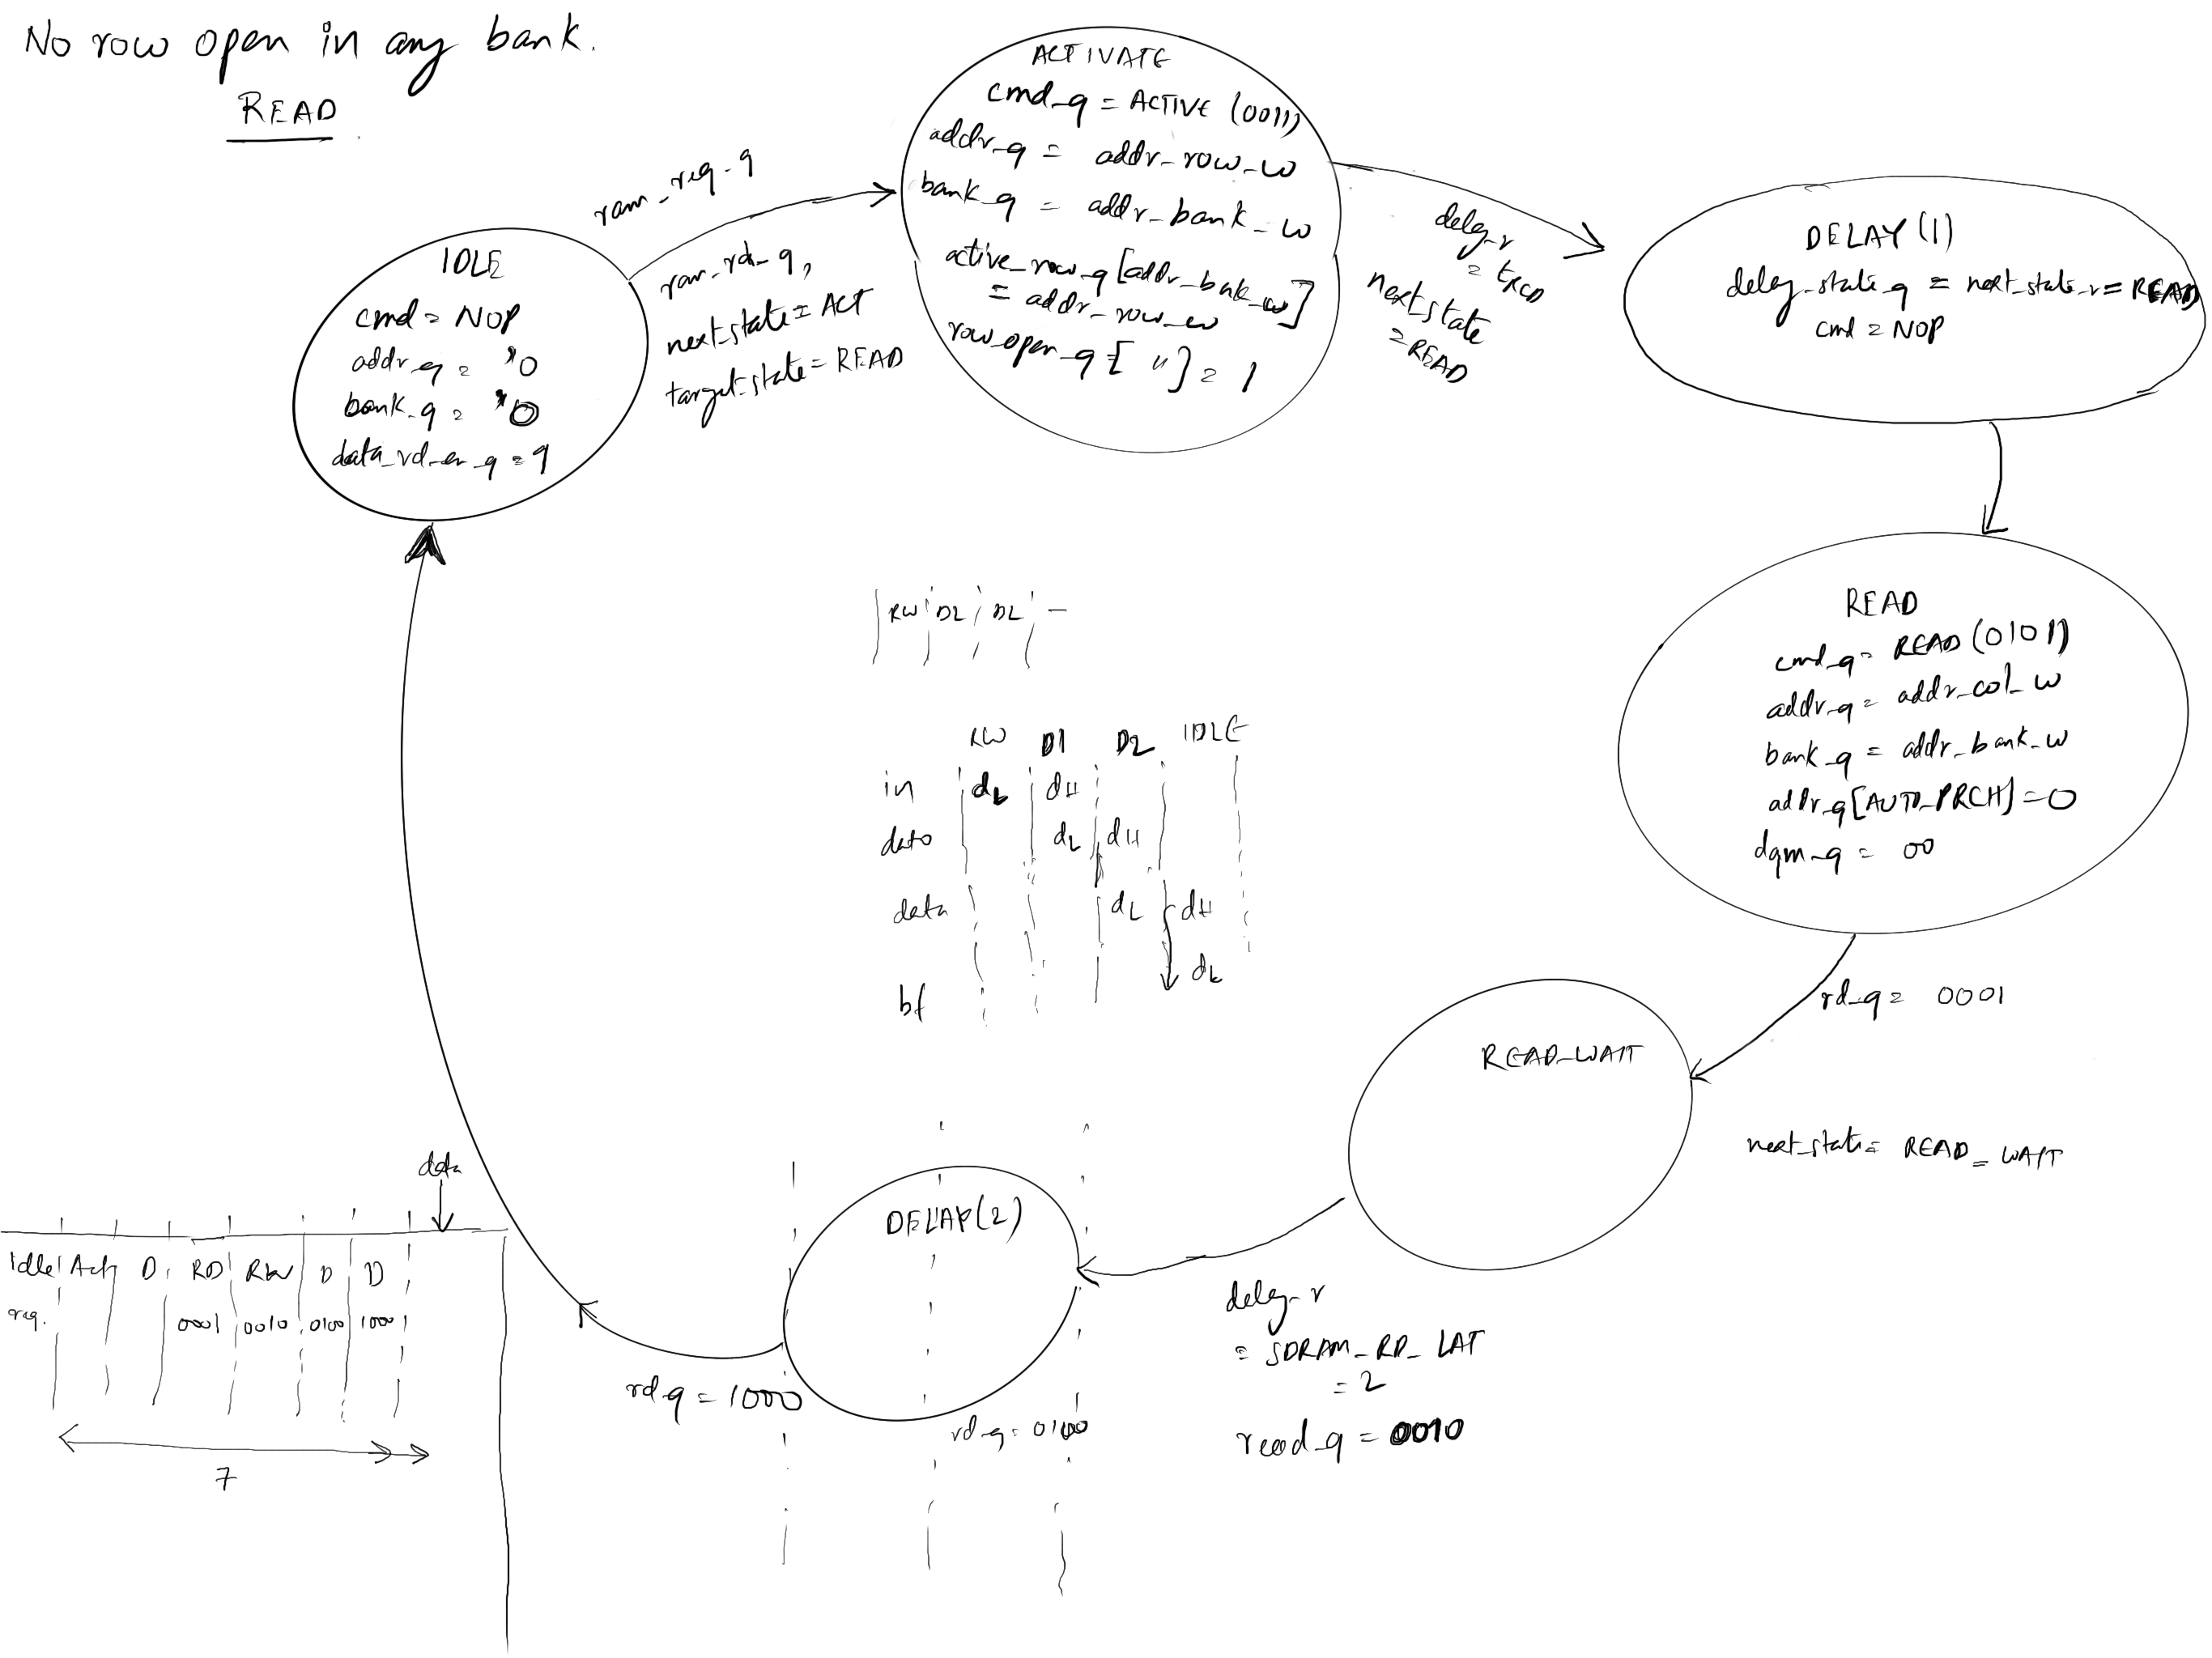 No row open in any bank.
READ
IDLE
cmd = NOP
addr_q = '0
bank_q = '0
data_rd_en_q = q
ram_req_q
ram_rd_q,
next_state = ACT
target_state = READ
ACTIVATE
cmd_q = ACTIVE (0011)
addr_q = addr_row_w
bank_q = addr_bank_w
active_row_q [addr_bnk_w]
= addr_row_w
row_open_q [ " ] = 1
delay_r
= tRCD
next_state
= READ
DELAY (1)
delay_state_q = next_state_r = READ
cmd = NOP
READ
cmd_q = READ (0101)
addr_q = addr_col_w
bank_q = addr_bank_w
addr_q [AUTO_PRCH] = 0
dqm_q = 00
rd_q = 0001
next_state = READ_WAIT
READ_WAIT
delay_r
= SDRAM_RD_LAT
= 2
read_q = 0010
DELAY (2)
rd_q = 0100
rd_q = 1000
RW D2 D2 -
RW D1 D2 IDLE
in dL dH
data dL dH
data dL dH
bf dL
data
Idle Act D RD RW D D
req. 0001 0010 0100 1000
7